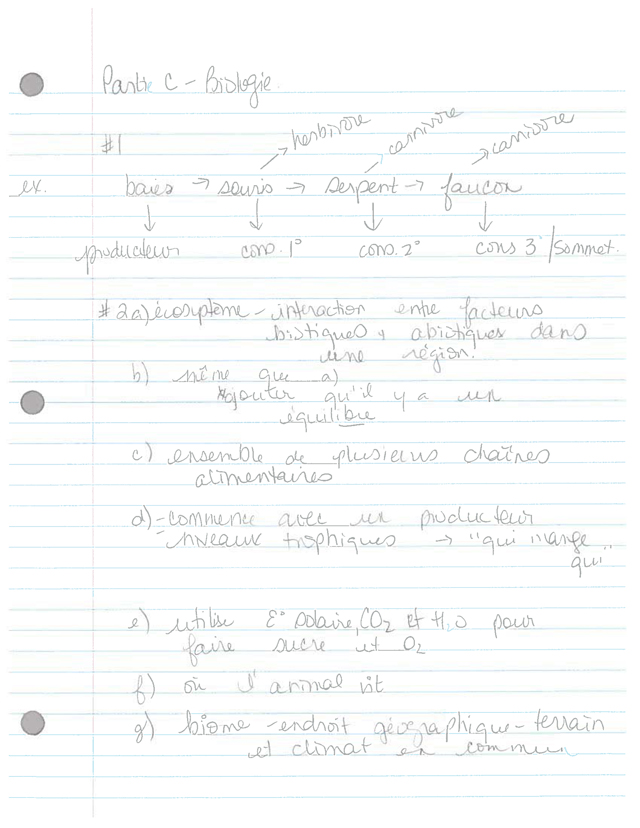 Partie C - Biologie.
#1
herbivore carnivore carnivore
ex. baies → souris → serpent → faucon
producteur cons. 1° cons. 2° cons 3°/sommet.
#2a) écosystème - interaction entre facteurs
biotiques + abiotiques dans
une région.
b) même que a)
*ajouter qu'il y a un
équilibre
c) ensemble de plusieurs chaînes
alimentaires
d) - commence avec un producteur
- niveaux trophiques → "qui mange
qui"
e) utilise E° solaire, CO₂ et H₂O pour
faire sucre et O₂
f) où l'animal vit
g) biome - endroit géographique - terrain
et climat en commun